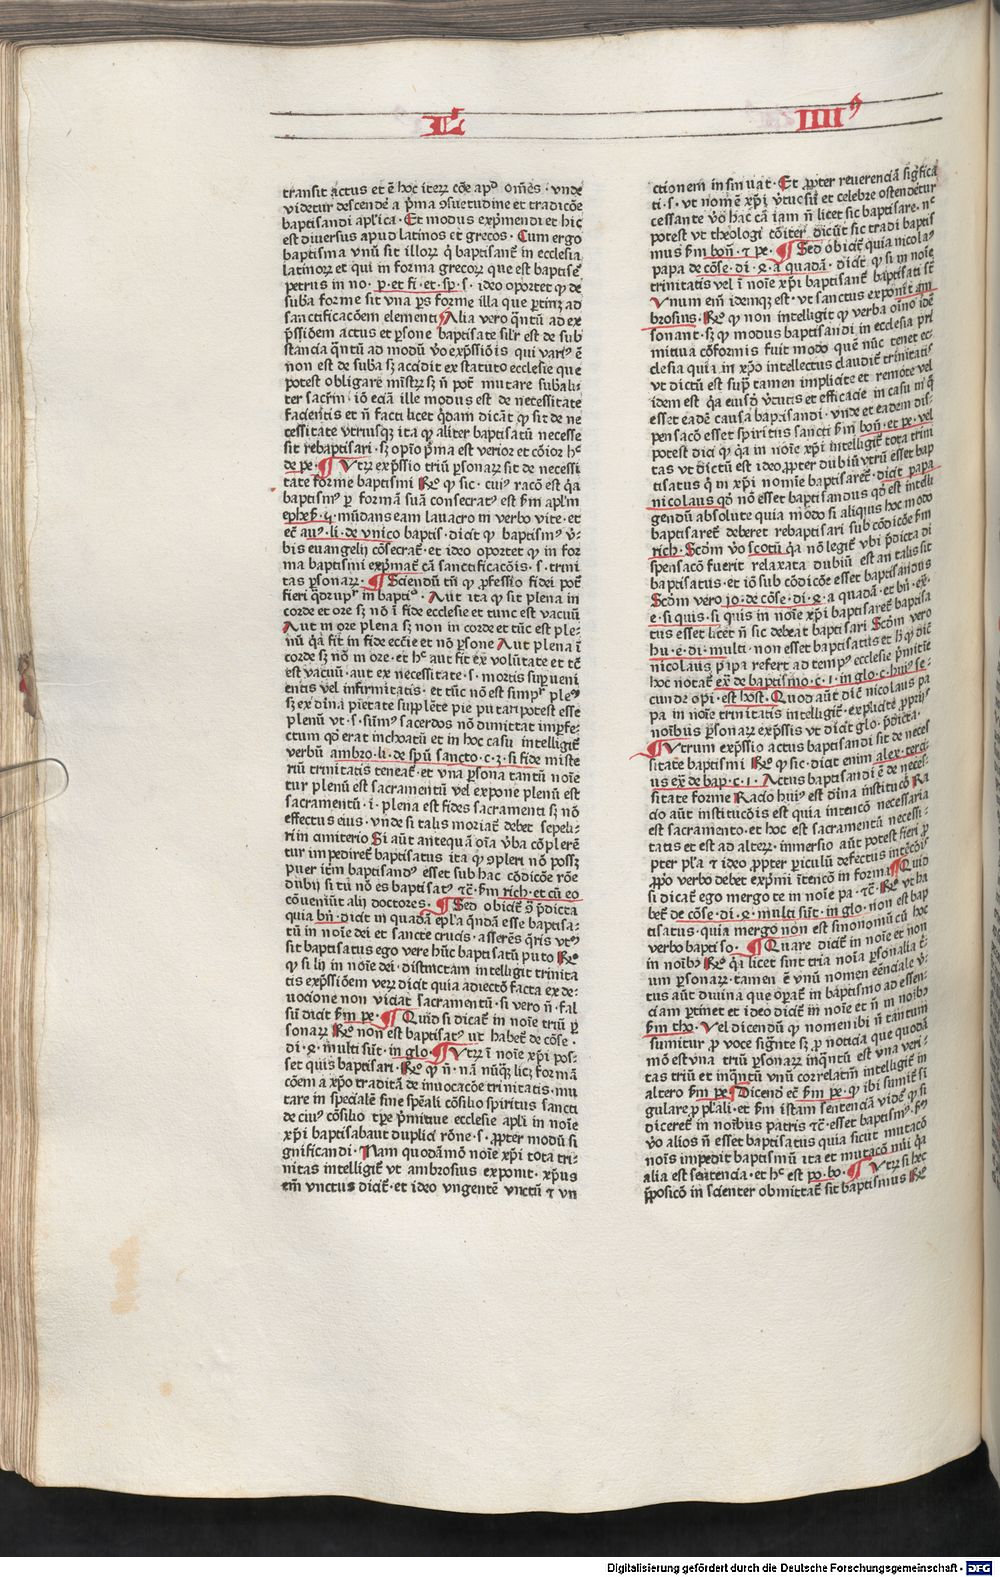 L IIII⁹
transit actus et ē hoc iterꝝ cōe apᵈ om̄es · vnde
videtur descendeē a p̄ma ꝯsuetudine et tradicōe
baptisandi apl'ica · Et modus exp̄mendi et hic
est diuersus apud latinos et grecos · Cum ergo
baptisma vnū sit illorꝝ q̄ baptisant̄ in ecclesia
latinorꝝ et qui in forma grecorꝝ que est baptiset̄
petrus in no · p · et fi · et · sp̄ · s · ideo oportet ꝙ de
suba forme sit vna ps̄ forme illa que ꝑtinꝫ ad
sanctificacōem elementi Alia vero q̄ntū ad ex
p̄ssiōem actus et ꝑsone baptisate sil'r est de sub
stancia q̄ntū ad modū v̓o exp̄ssiōis qui vari⁹ ē
non est de suba sꝫ accidit ex statuto ecclesie que
potest obligare mīstrꝝ sꝫ n̄ pot̄ mutare subali
ter sacr̄m · iō eciā ille modus est de necessitate
facientis et n̄ facti licet q̄dam dicāt ꝙ sit de ne
cessitate vtriusqꝫ ita ꝙ aliter baptisatū necesse
sit rebaptisari · sꝫ opīo p̄ma est verior et cōior hᶜ
de pe · ¶ Vtrꝝ exp̄ssio triū ꝑsonarꝝ sit de necessi
tate forme baptismi ℞e ꝙ sic · cui⁹ racō est q̄a
baptism⁹ ꝑ formā suā consecrat⁹ est ẜm apl'm
ephes̄ · q̄ · mūdans eam lauacro in verbo vite · et
ec̄ au⁹ · li · de vnico baptis · dicit ꝙ baptism⁹ v̓
bis euangelij cōsecrat̄ · et ideo oportet ꝙ in for
ma baptismi exp̄mat̄ cā sanctificacōis · s · trini
tas ꝑsonarꝝ · ¶ Sciendū tn̄ ꝙ ꝓfessio fidei pot̄
fieri q̄drupʳ in bapti⁹ · Aut ita ꝙ sit plena in
corde et ore sꝫ nō ī fide ecclesie et tunc est vacuū
Aut in ore plena sꝫ non in corde et tūc est ple
nū q̄a fit in fide eccīe et nō ꝑsone Aut plena ī
corde sꝫ nō in ore · et hᶜ aut fit ex volūtate et tc̄
est vacuū · aut ex necessitate · s · mortis supueni
entis vel infirmitatis · et tūc nō est simpʳ ple⁹
sꝫ ex dīna pietate supplēte pie putari potest esse
plenū vt · s · sūm⁹ sacerdos nō dimittat imꝑfe
ctum qᵒ erat inchoatū et in hoc casu intelligit̄
verbū ambro · li · de spū sancto · c · 2 · si fide miste
riū trinitatis teneat̄ · et vna ꝑsona tantū noīe
tur plenū est sacramentū vel expone plenū est
sacramentū · i · plena est fides sacramenti sꝫ nō
effectus eius · vnde si talis moriat̄ debet sepeli
ri in cimiterio Si aūt anteq̄ā oīa v̓ba cōplerē
tur impediret̄ baptisatus ita ꝙ ꝯpleri nō possꝫ
puer itm̄ baptisand⁹ esset sub hac cōdicōe rōe
dubij si tū nō es baptisat⁹ ⁊c̄ · ẜm rich · et cū eo
cōueniūt alij doctores · ¶ Sed obicit̄ ꝯ̄ p̄dicta
quia bn̄ · dicit in quadā epl'a q̄ndā esse baptisa
tū in noīe dei et sancte crucis · asserēs q̄ris vt⁹
sit baptisatus ego vere hūc baptisatū puto ℞e
ꝙ si lij in noīe dei · distinctam intelligit trinita
tis exp̄ssiōem verꝝ dicit quia adiectō facta ex de
uocione non viciat sacramentū · si vero n̄ · fal
sū dicit ẜm pe · ¶ Quid si dicat̄ in noīe triū ꝑ
sonarꝝ ℞e non est baptisat⁹ ut habet̄ de cōse ·
di · 4 · multi sūt · in glo · ¶ Vtrꝝ ī noīe xp̄i pos
set quis baptisari · ℞e ꝙ n̄ · nā nūq̄ꝫ licꝫ formā
cōem a xp̄o traditā de inuocacōe trinitatis · mu
tare in specialē sine sp̄eali cōsilio spiritus sancti
de cui⁹ cōsilio tp̄e p̄mitiue ecclesie apl'i in noīe
xp̄i baptisabaut duplici rōne · s · ꝓpter modū si
gnificandi · Nam quodāmō noīe xp̄i tota tri
nitas intelligit̄ vt ambrosius exponit · xp̄us
em̄ vnctus dicit̄ · et ideo vngentē vnctū ⁊ vn
ctionem insinuat · Et ꝓpter reuerenciā sig̓fica
ti · s · vt nomē xp̄i v̓tuesū et celebre ostendētur
cessante v̓o hac cā iam n̄ licet sic baptisare · nᶜ
potest vt theologi cōiter dicūt sic tradi baptis
mus ẜm bon̄ · ⁊ pe · ¶ Sed obicit̄ quia nicola⁹
papa de cōse · di · 4 · a quadā · dicit ꝙ si in noīe
trinitatis vel ī noīe xp̄i baptisant̄ baptisati st̄
Vnum em̄ idemqꝫ est · vt sanctus exponit am
brosius · ℞e ꝙ non intelligit ꝙ verba oīno idē
sonant · sꝫ ꝙ modus baptisandi in ecclesia pri
mitiua cōformis fuit modo quē nūc tenet ec
clesia quia in xp̄o intellectus claudit̄ trinitatis
vt dictū est sup̄ tamen implicite et remote vel
idem est q̄a eiusd̄ v̓tutis et efficacie in casu in q̄
esset eadē causa baptisandi · vnde et eadem dis
pensacō esset spiritus sancti ẜm bon̄ · et pe · vel
potest dici ꝙ q̄a in noīe xp̄i intelligit̄ tota trini
tas vt dictū est ideo ꝓpter dubiū vtrū esset bap
tisatus q̄ in xp̄i nomīe baptisaret̄ · dicit papa
nicolaus qᵒ nō esset baptisandus qᵒ est intelli
gendū absolute quia modo si aliquis hoc modo
baptisaret̄ deberet rebaptisari sub cōdicōe ẜm
rich · Scōm v̓o scotū q̄a nō legit̄ vbi p̄dicta di
spensacō fuerit relaxata dubiū est an talis sit
baptisatus · et iō sub cōdicōe esset baptisandus
Scōm vero jo · de cōse · di · 4 · a quadā · et bn̄ · ex ·
e · si quis · si quis in noīe xp̄i baptisaret̄ baptisa
tus esset licet n̄ sic debeat baptisari Scōm vero
hu · e · di · multi · non esset baptisatus et h̄ ꝙ dic̄
nicolaus papa refert ad temp⁹ ecclesie p̄mitie
hoc notat̄ ex̄ de baptismo · c · 1 · in glo · c · hui⁹ se
cunde opi · est host · Quod aūt dic̄ nicolaus pa
pa in noīe trinitatis intelligit̄ · explicite ꝓprijs
noībus ꝑsonarꝝ exp̄ssis vt dicit glo · p̄dicta ·
¶ Vtrum exp̄ssio actus baptisandi sit de neces
sitate baptismi ℞e ꝙ sic · dicit enim alex · terci
us ex̄ de bap · c · 1 · Actus baptisandi ē de neces
sitate forme Racio hui⁹ est dīna institucō Ra
cio aūt institucōis est quia intencō necessaria
est sacramento · et hoc est sacramentū necessi
tatis et est ad alterꝝ · immersio aūt potest fieri ꝓ
pter pl'a ⁊ ideo ꝓpter periculū defectus intēcōis
ꝓpo verbo debet exp̄mi ītencō in forma ¶ Quid
si dicat̄ ego mergo te in noīe pa · ⁊c̄ · ℞e vt ha
bet̄ de cōse · di · 4 · multi sūt · in glo · non est bap
tisatus · quia mergo non est sinonomū cū hoc
verbo baptiso · ¶ Quare dicit̄ in noīe et non
in noībꝫ ℞e q̄a licet sint tria noīa ꝑsonalia t̄
um ꝑsonarꝝ · tamen ē vnū nomen eēnciale v̓
tus aūt diuina que oꝑat̄ in baptismo ad essen
ciam ꝑtinet et ideo dicit̄ in noīe et n̄ in noībꝫ
ẜm tho · Vel dicendū ꝙ nomen ibi n̄ tantum
sumitur ꝓ voce significnte sꝫ ꝓ noticia que quodā
mō est vna triū ꝑsonarꝝ inq̄ntū est vna veri
tas triū et inq̄ntū vnū correlatm̄ intelligit̄ in
altero ẜm pe ¶ Dicend̄ ec̄ ẜm pe · ꝙ ibi sumit̄ si
gulare ꝓ pl'ali · et ẜm istam sentenciā vide ꝙ si
diceret̄ in noībus patris ⁊c̄ · esset baptism⁹ · ẜm
v̓o alios n̄ esset baptisatus quia sicut mutacō
nois impedit baptismū ita et mutacō nūi q̄a
alia est sentencia · et hᶜ est po · bo · ¶ Vtrꝝ si hec
p̄posicō in scienter obmittat̄ sit baptismus ℞e
Digitalisierung gefördert durch die Deutsche Forschungsgemeinschaft · DFG